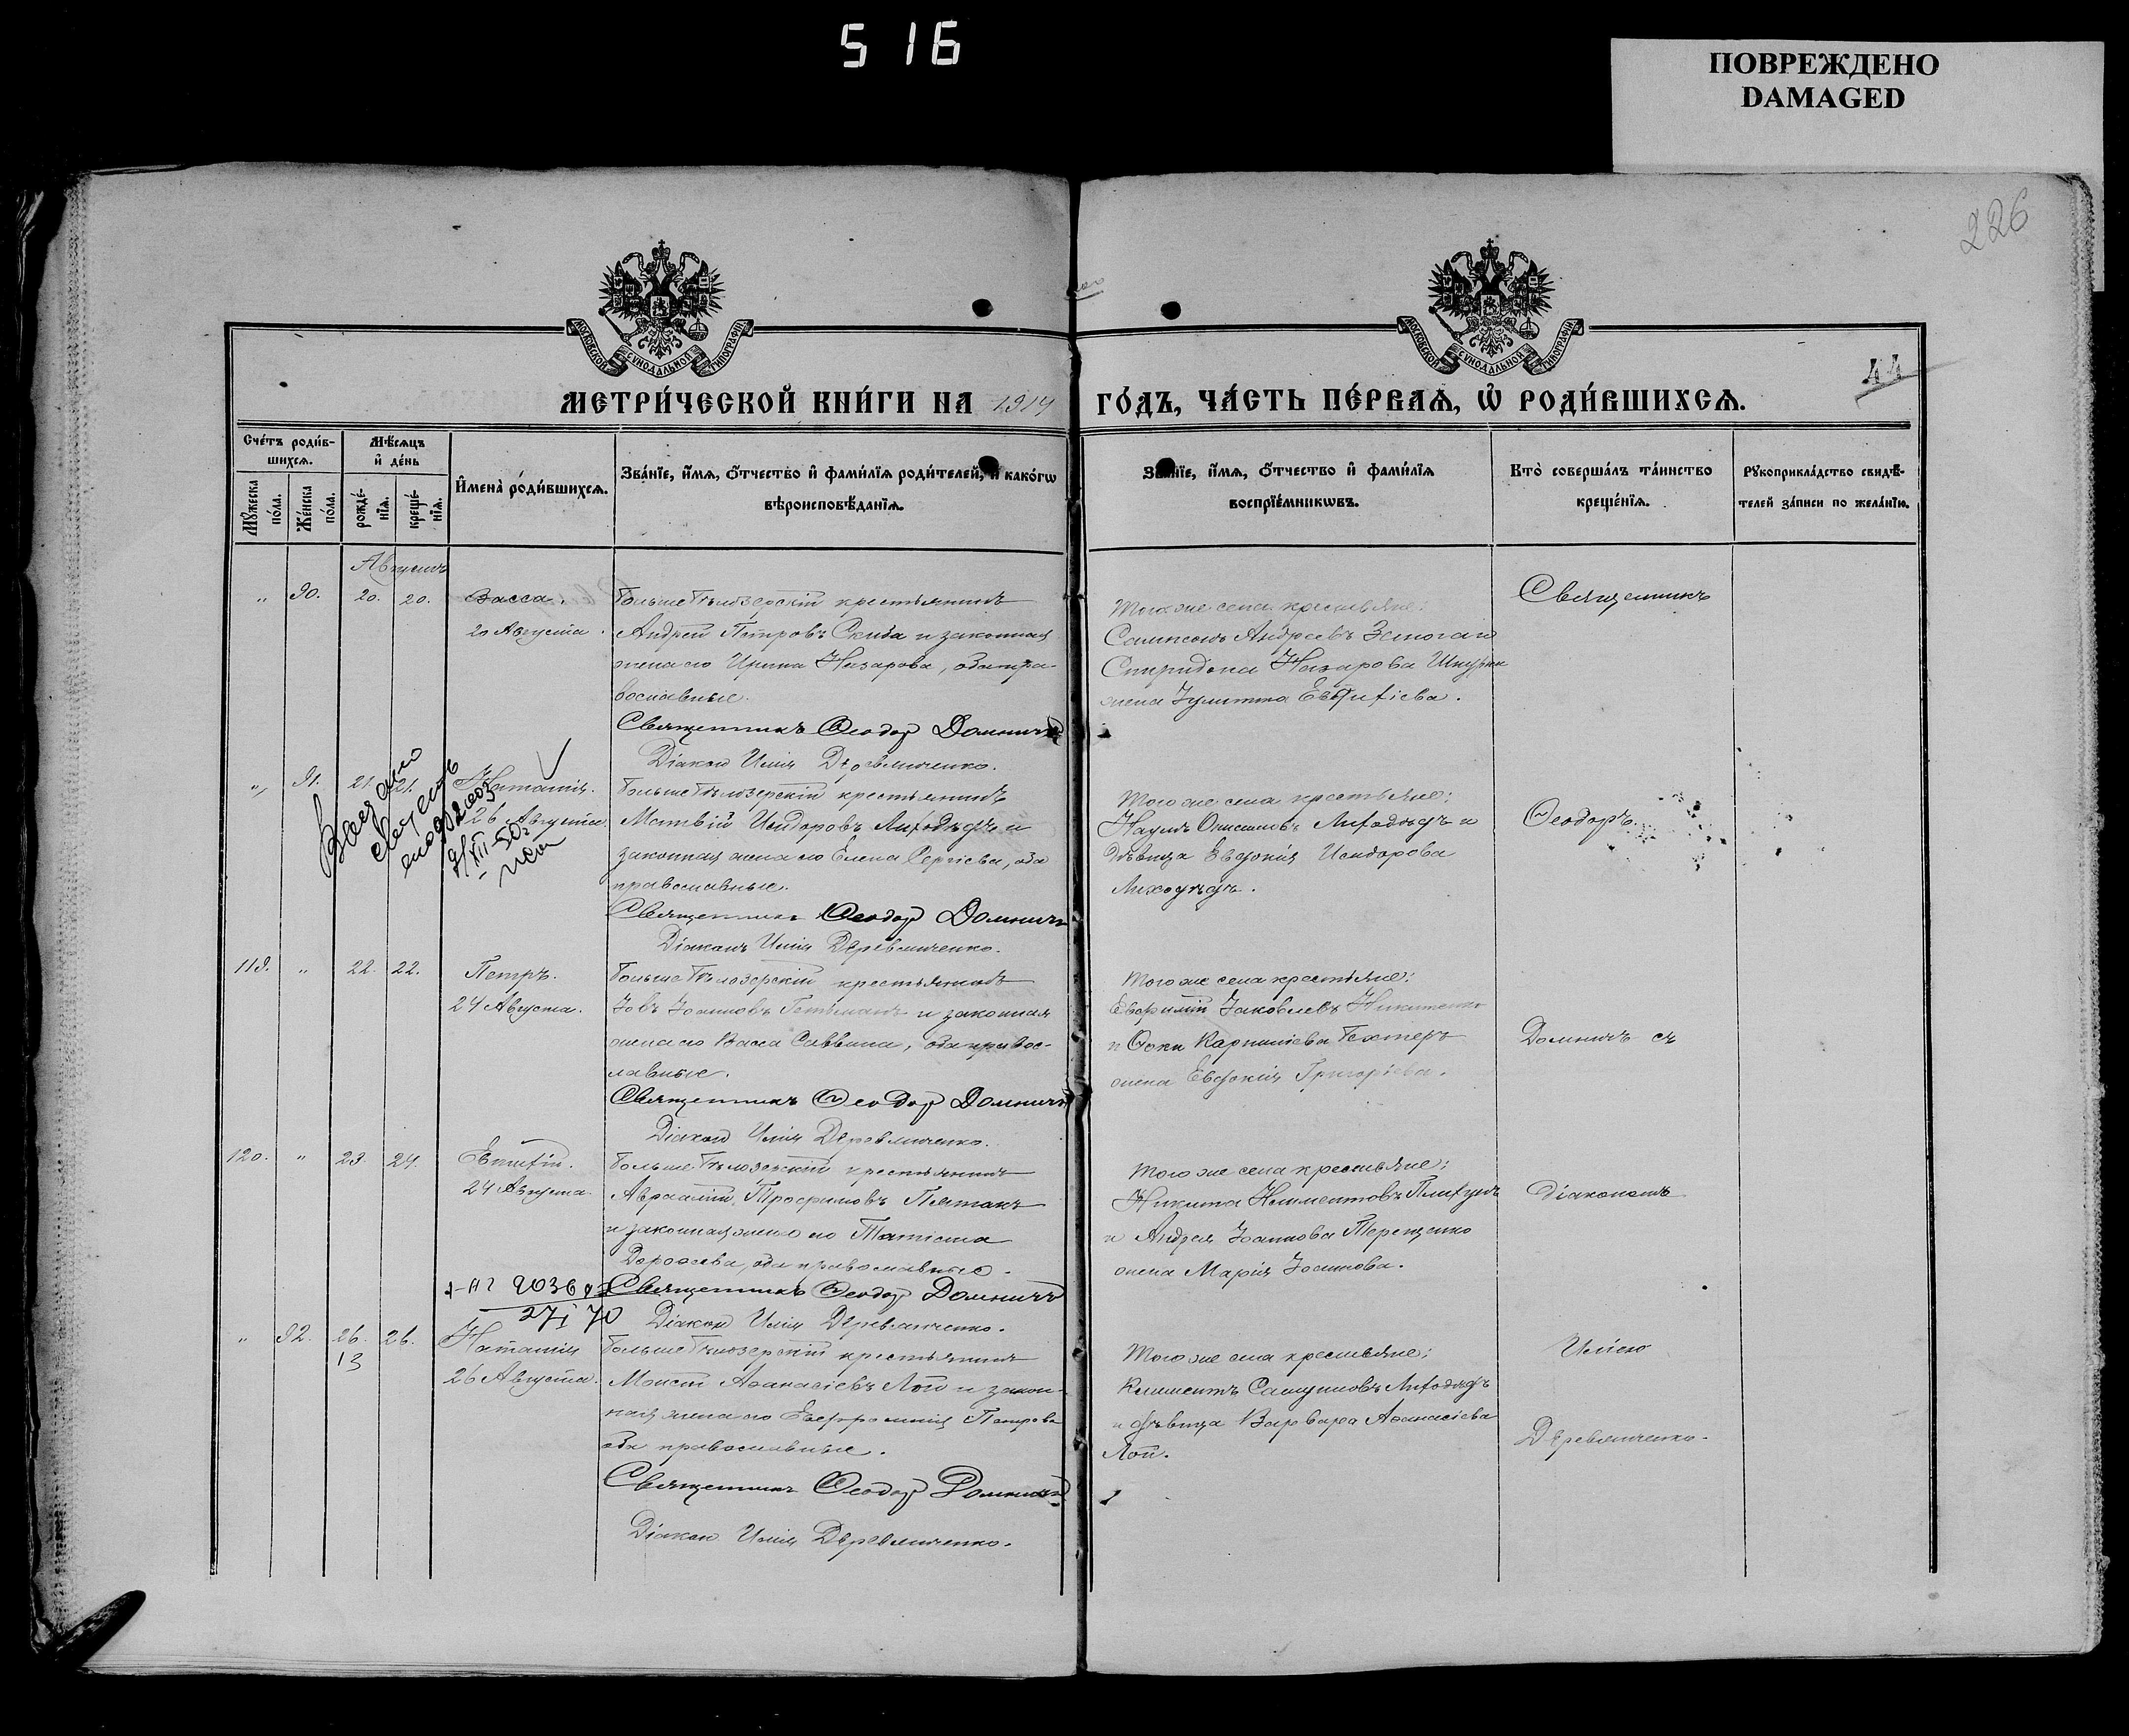 516
ПОВРЕЖДЕНО
DAMAGED
226
44
МОСКОВСКОЙ СѴНОДАЛЬНОЙ ТИПОГРАФІИ
МОСКОВСКОЙ СѴНОДАЛЬНОЙ ТИПОГРАФІИ
МЕТРИ́ЧЕСКОЙ КНИ́ГИ НА 1914 ГО́ДЪ, ЧА́СТЬ ПЕ́РВАѦ, Ѡ҆ РОДИ́ВШИХСѦ.
Сче́тъ роди́в-
шихсѧ.
Мꙋ́жеска по́ла.
Же́нска по́ла.
Мѣ́сѧцъ
и҆ де́нь
рожде́-
нїѧ.
креще́-
нїѧ.
И҆мена̀ роди́вшихсѧ.
Зва́нїе, и҆́мѧ, ѻ҆́тчество и҆ фами́лїѧ роди́телей, и҆ како́гѡ
вѣроисповѣ́данїѧ.
Зва́нїе, и҆́мѧ, ѻ҆́тчество и҆ фами́лїѧ
воспрїе́мникѡвъ.
Кто̀ соверша́лъ та́инство
креще́нїѧ.
Рꙋкоприкла́дство свидѣ́-
телей за́писи по жела́нїю.
Августъ
" 90. 20. 20. Васса.
20 Августа.
БольшеБѣлозерскій крестьянинъ
Андрей Петровъ Скиба и законная
жена его Ирина Назарова, оба пра-
вославные.
Священникъ Ѳеодор Домничъ
Діакон Илія Деревянченко.
Того же села крестьяне:
Сампсонъ Андреевъ
Спиридона Назарова
жена Іулитта Евѳиміева.
Священникъ
" 91. 21. 21. Наталія.
26 Августа.
Выдано
БольшеБѣлозерскій крестьянинъ
Матвій Исидоровъ Лиходѣдъ и
законная жена его Елена Сергіева, оба
православные.
Священникъ Ѳеодор Домничъ
Діаконъ Илія Деревянченко.
Того же села крестьяне:
Наумъ Лиходѣдъ и
дѣвица Евдокія Исидорова
Лиходѣдъ.
Ѳеодоръ
119. " 22. 22. Петръ.
24 Августа.
БольшеБѣлозерскій крестьянинъ
Іовъ Іоанновъ Гетьманъ и законная
жена его Васса Саввина, оба правос-
лавные.
Священникъ Ѳеодор Домничъ
Діакон Илія Деревянченко.
Того же села крестьяне:
Іаковлевъ Никитенко
и Ѳоки Карпиліева Бехтеръ
жена Евдокія Григоріева.
Домничъ съ
120. " 23. 24. Евтихій.
24 Августа
БольшеБѣлозерскій крестьянинъ
Авраамій Трофимовъ Пятакъ
и законная жена его Татіана
Дороѳеева, оба православные.
Священникъ Ѳеодор Домничъ
Діакон Илія Деревянченко.
27 I 70
Того же села крестьяне:
Никита Климентовъ
и Андрея Іоаннова Терещенко
жена Марія Іоаннова.
Діакономъ
" 92. 26. 26. Наталія
13
26 Августа.
БольшеБѣлозерскій крестьянинъ
Моисей Аѳанасіевъ Лой и закон-
ная жена его Евфросинія Петрова
оба православные.
Священникъ Ѳеодор Домничъ
Діакон Илія Деревянченко.
Того же села крестьяне:
Климентъ Самуиловъ Лиходѣдъ
и дѣвица Варвара Аѳанасіева
Лой.
Иліею
Деревянченко.